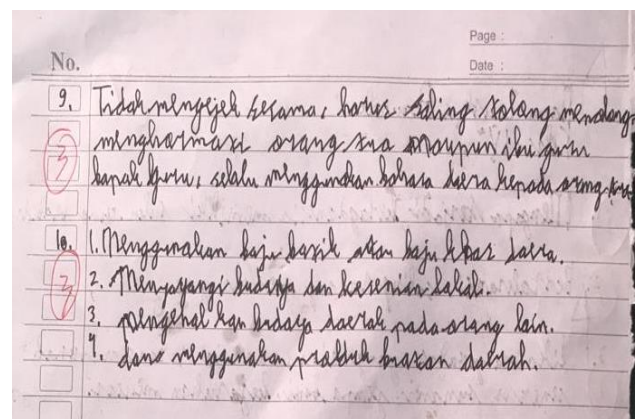 Page :
No.
Date :
9. Tidak mengejek sesama, harus saling tolong menolong,
menghormati orang tua maupun ibu guru
3
bapak guru, selalu menggunakan bahasa daera kepada orang tua
10. 1. Menggunakan baju batik atau baju khas daera.
3
2. Menyayangi budaya dan kesenian lokal.
3. mengenal kan budaya daerah pada orang lain.
4. dan menggunakan produk buatan daerah.